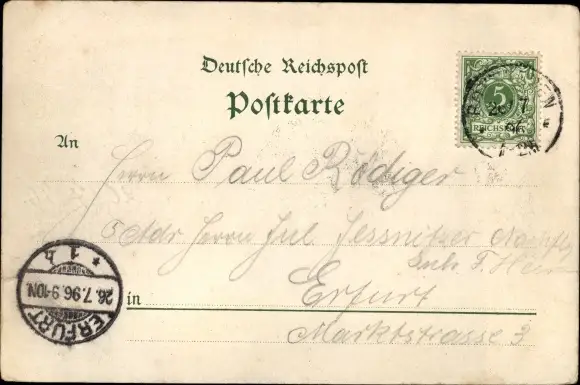 Deutsche Reichspost
Postkarte
5
REICHSPOST
26 7
An
Herrn Paul Rödiger
Adr Herrn Jul. Jessnitzer
Erfurt
in
Marktstrasse 3
ERFURT
* 1 h
26.7.96.9-10N.